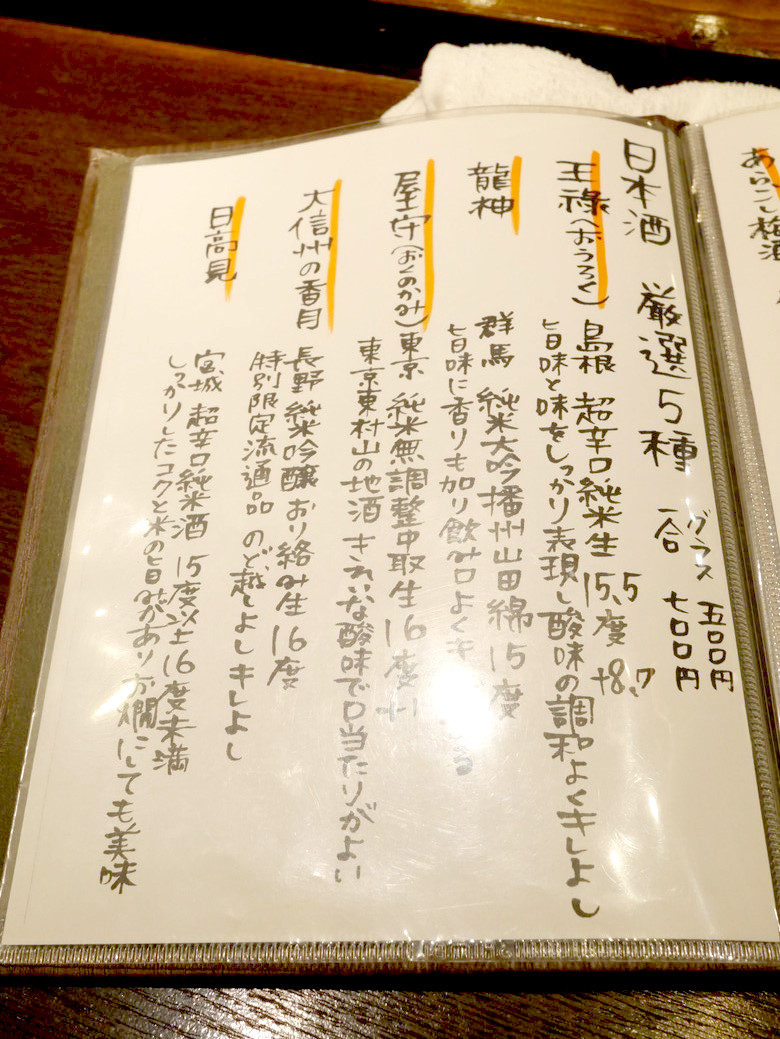 日本酒 厳選5種 グラス 五〇〇円
一合 七〇〇円
王祿(おうろく) 島根 超辛口純米生 15.5度 +8.7
旨味と味をしっかり表現し酸味の調和よくキレよし
龍神 群馬 純米大吟播州山田錦 15度
旨味に香りも加り飲み口よくキ
屋守(おくのかみ) 東京 純米無調整中取生 16度 +1
東京東村山の地酒 きれいな酸味で口当たりがよい
大信州の香月 長野 純米吟醸 おり絡み生 16度
特別限定流通品 のど越しよしキレよし
日高見 宮城 超辛口純米酒 15度以上16度未満
しっかりしたコクと米の旨みがありお燗にしても美味
あらごし梅酒